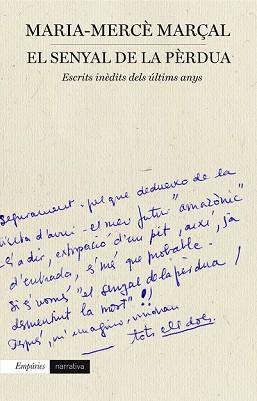 MARIA-MERCÈ MARÇAL
EL SENYAL DE LA PÈRDUA
Escrits inèdits dels últims anys
Segurament - pel que dedueixo de la
visita d'avui - el meu futur "amazònic"
és a dir, extirpació d'un pit, així, ja
d'entrada, s'més que probable.
Si és només "el senyal de la pèrdua /
desmentint la mort"!!
Després, m'imagino, vindran
tots els dols.
Empúries
narrativa